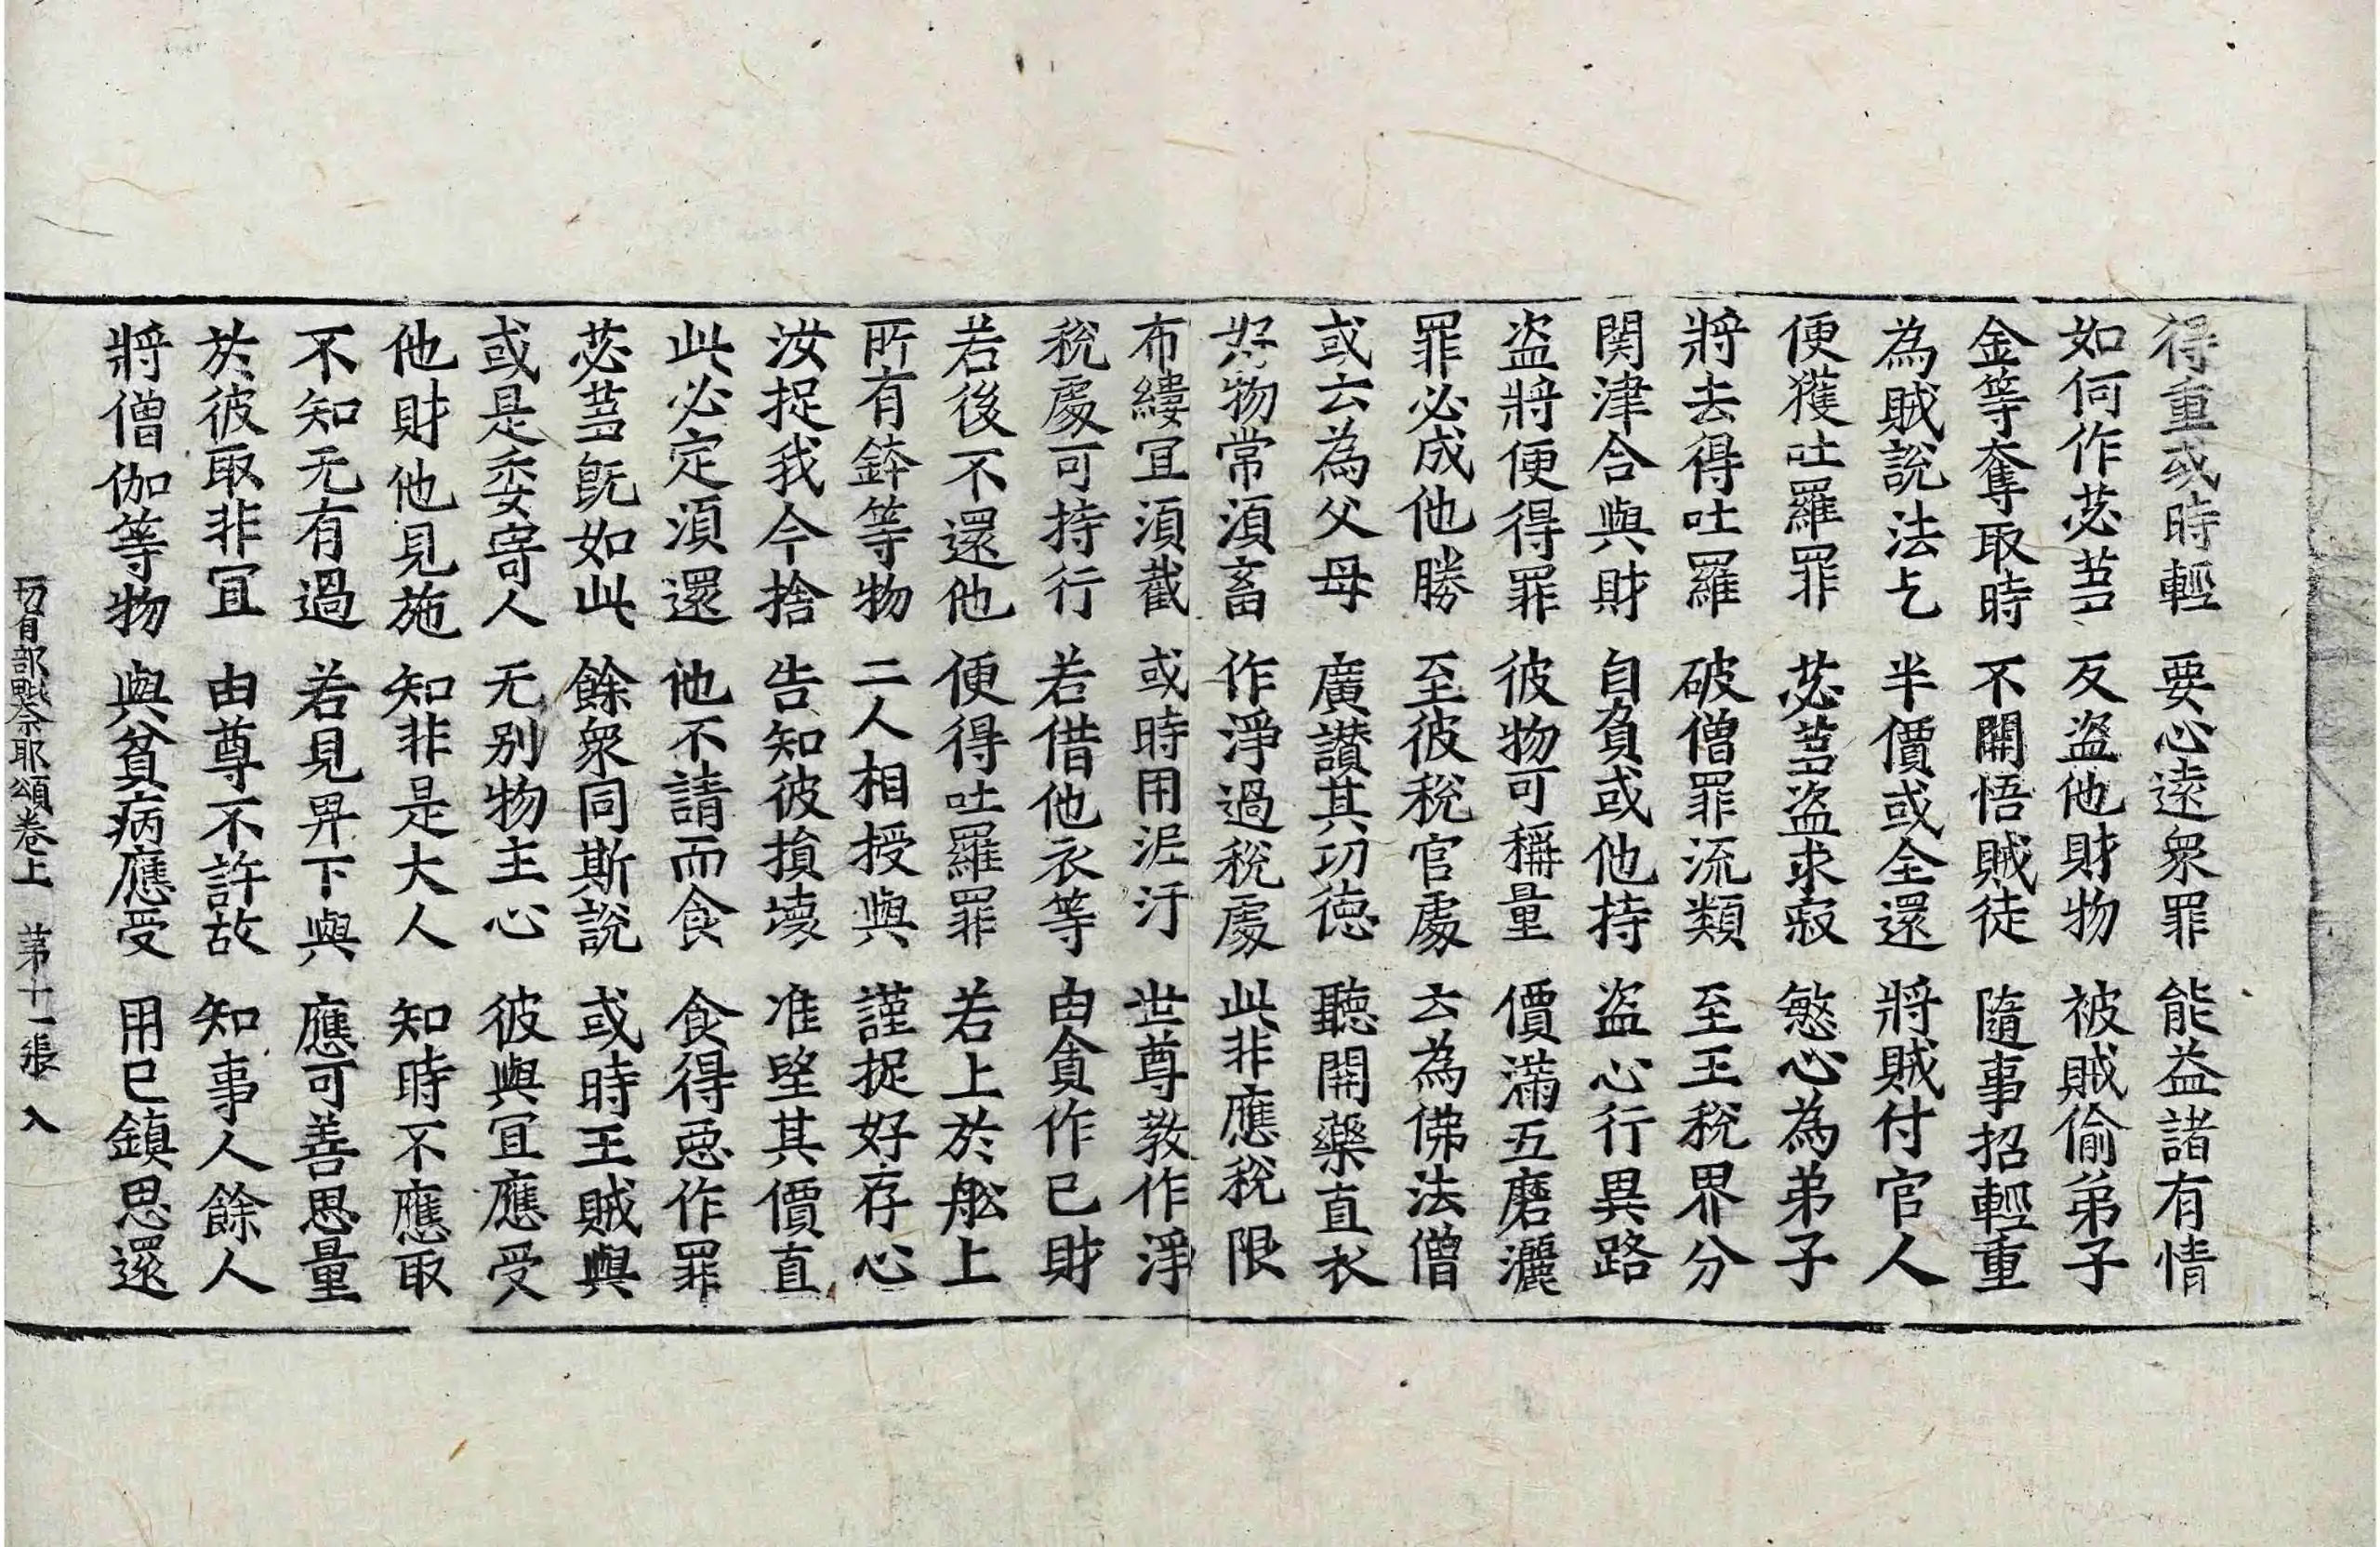 得重或時輕　要心遠衆罪　能益諸有情
如何作苾芻　反盜他財物　被賊偷弟子
金等奪取時　不開悟賊徒　隨事招輕重
為賊說法乞　半價或全還　將賊付官人
便獲吐羅罪　苾芻盜求寂　慜心為弟子
將去得吐羅　破僧罪流類　至王稅界分
関津合與財　自負或他持　盜心行異路
盜將便得罪　彼物可稱量　價滿五磨灑
罪必成他勝　至彼稅官處　云為佛法僧
或云為父母　廣讃其功徳　聽開藥直衣
好物常湏畜　作淨過稅處　此非應稅限
布縷冝湏截　或時用泥汙　世尊教作淨
稅處可持行　若借他衣等　由貪作已財
若後不還他　便得吐羅罪　若上於舩上
所有鉢等物　二人相授與　謹捉好存心
汝捉我今捨　告知彼損壞　准堅其價直
此必定湏還　他不請而食　食得惡作罪
苾芻旣如此　餘衆同斯說　或時王賊與
或是委寄人　无別物主心　彼與冝應受
他財他見施　知非是大人　知時不應取
不知无有過　若見昇下與　應可善思量
於彼取非冝　由尊不許故　知事人餘人
將僧伽等物　與貧病應受　用已鎮思還
切有部毗奈耶頌卷上　苐十一張　入